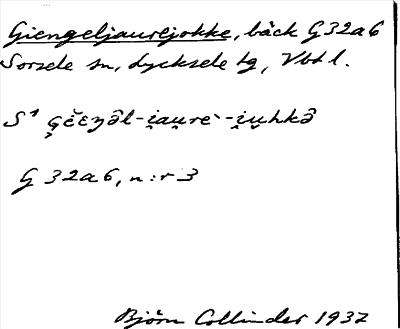 Giengeljaurejokke, bäck G32a6
Sorsele sn, Lycksele lg, Vbt l.
S¹ g̜ĕεŋə̂l-i̯au̯re`-i̯u̯hkə̂
G 32a6, n:r 3
Björn Collinder 1937